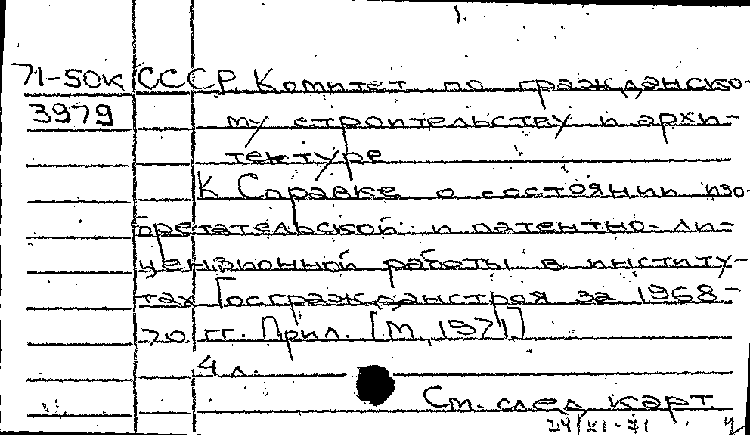 71-50к СССР. Комитет по гражданско-
3979 му строительству и архи-
тектуре
К Справке о состоянии изо-
бретательской и патентно-ли-
цензионной работы в институ-
тах Госгражданстроя за 1968-
70 гг. Прил. [М, 1971]
4 л.
См. след карт
24/XI-71